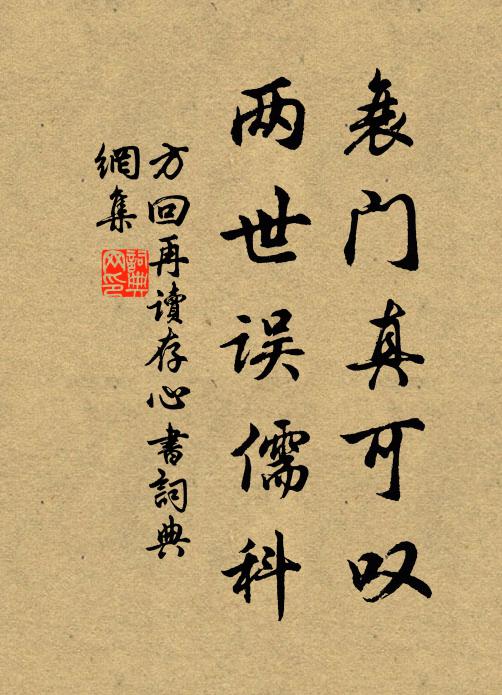 衰门真可叹
两世误儒科
方回再讀存心書詞典
網集
詞典
网印